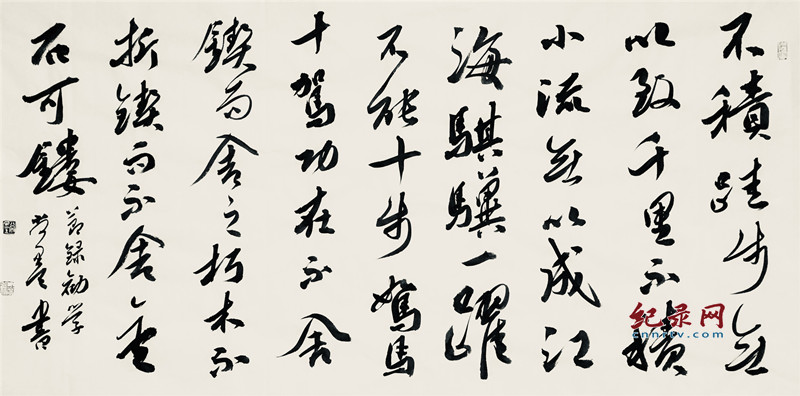 不積跬步無
以致千里不積
小流無以成江
海騏驥一躍
不能十步駑馬
十駕功在不舍
鍥而舍之朽木不
折鍥而不舍金
石可鏤
節錄勸学
書
纪录网